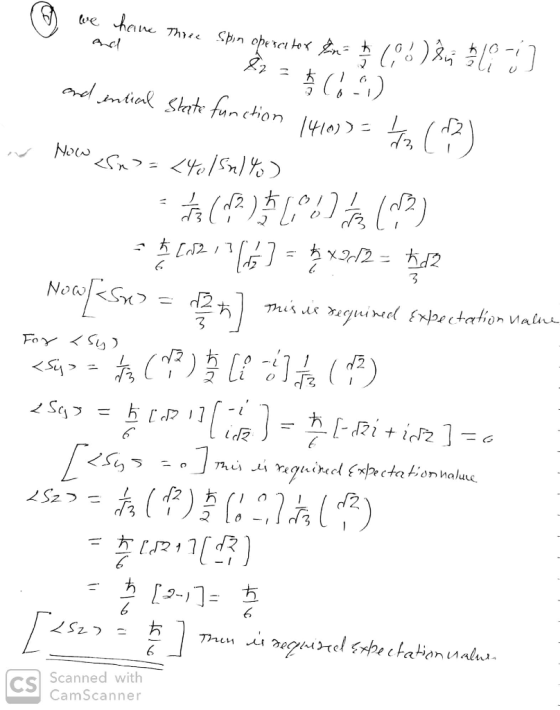 (a) we have three spin operator Ŝx = ħ/2 (0 1; 1 0) Ŝy = ħ/2 [0 -i; i 0]
and Ŝz = ħ/2 (1 0; 0 -1)
and intial state function |ψ(0)> = 1/√3 (√2; 1)
Now <Sx> = <ψ0|Sx|ψ0>
= 1/√3 (√2; 1) ħ/2 [0 1; 1 0] 1/√3 (√2; 1)
= ħ/6 [√2 1] [1; √2] = ħ/6 × 2√2 = ħ√2/3
Now [<Sx> = √2/3 ħ] This is required Expectation value
For <Sy>
<Sy> = 1/√3 (√2; 1) ħ/2 [0 -i; i 0] 1/√3 (√2; 1)
<Sy> = ħ/6 [√2 1] [-i; i√2] = ħ/6 [-√2i + i√2] = 0
[<Sy> = 0] This is required Expectation value
<Sz> = 1/√3 (√2; 1) ħ/2 (1 0; 0 -1) 1/√3 (√2; 1)
= ħ/6 [√2 1] [√2; -1]
= ħ/6 [2-1] = ħ/6
[<Sz> = ħ/6] This is required Expectation value.
CS Scanned with
CamScanner